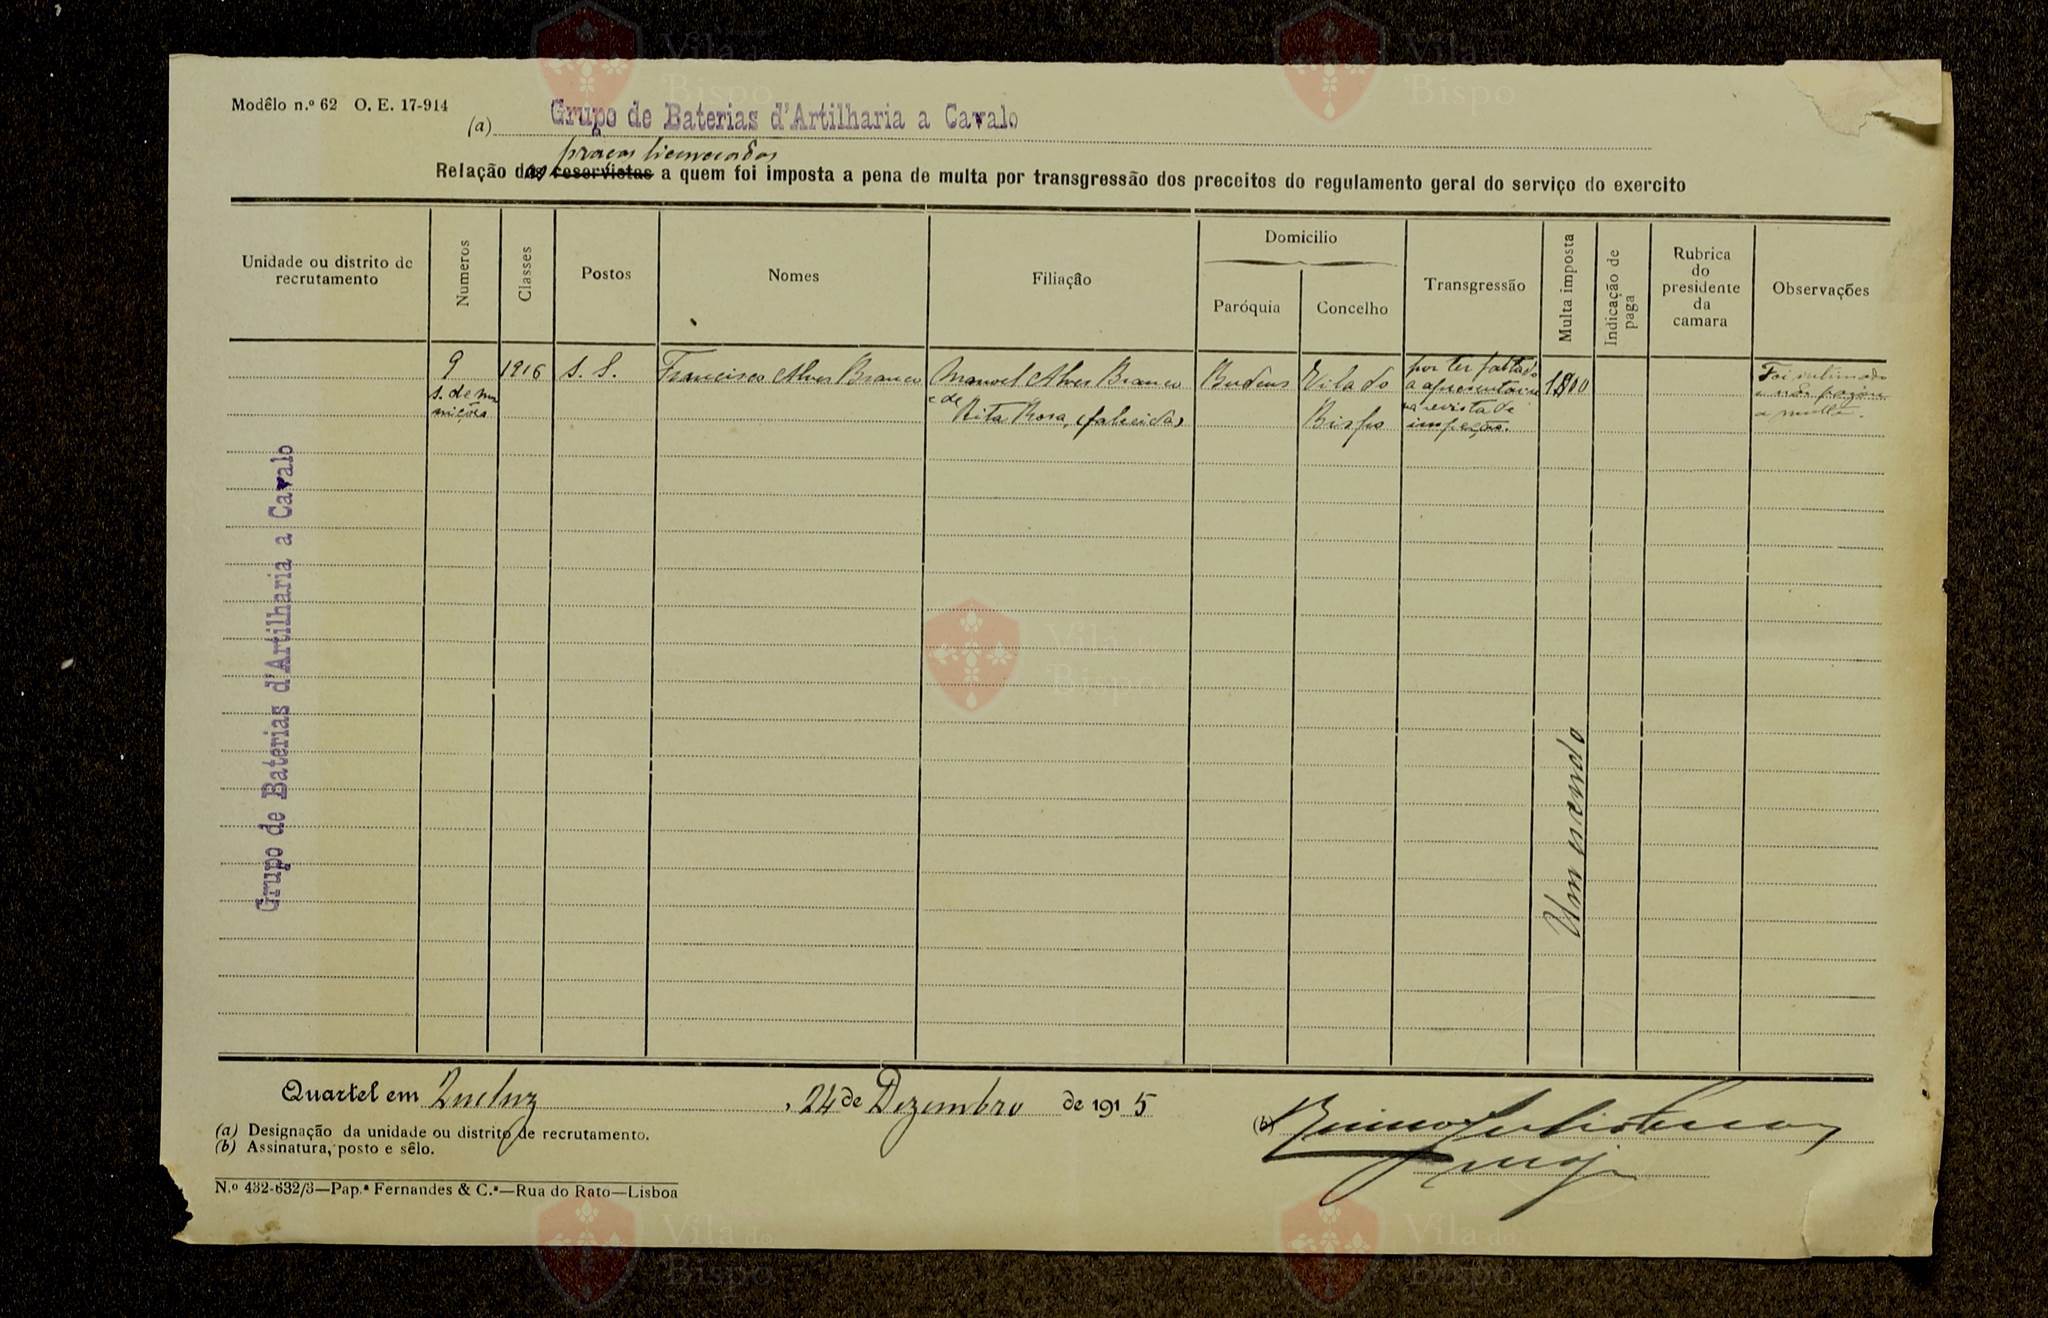 Modêlo n.º 62 O. E. 17-914
(a) Grupo de Baterias d'Artilharia a Cavalo
praças licenceadas
Relação das reservistas a quem foi imposta a pena de multa por transgressão dos preceitos do regulamento geral do serviço do exercito
Unidade ou distrito de recrutamento
Numeros
Classes
Postos
Nomes
Filiação
Domicilio
Paróquia
Concelho
Transgressão
Multa imposta
Indicação de paga
Rubrica do presidente da camara
Observações
9
s. de mu
nições
1916
S. S.
Francisco Alves Branco
Manoel Alves Branco
e de
Rita Rosa, (falecida)
Budens
Vila do
Bispo
por ter faltado
a apresentar-se
na revista de
inspeção.
1$00
Foi intimado
e não pagou
a multa.
Grupo de Baterias d'Artilharia a Cavalo
Um escudo
Quartel em Queluz, 24 de Dezembro de 1915
(a) Designação da unidade ou distrito de recrutamento.
(b) Assinatura, posto e sêlo.
(b)
maj
N.º 432-632/3—Pap.ª Fernandes & C.ª—Rua do Rato—Lisboa
Vila do
Bispo
Vila do
Bispo
Vila do
Bispo
Vila do
Bispo
Vila do
Bispo